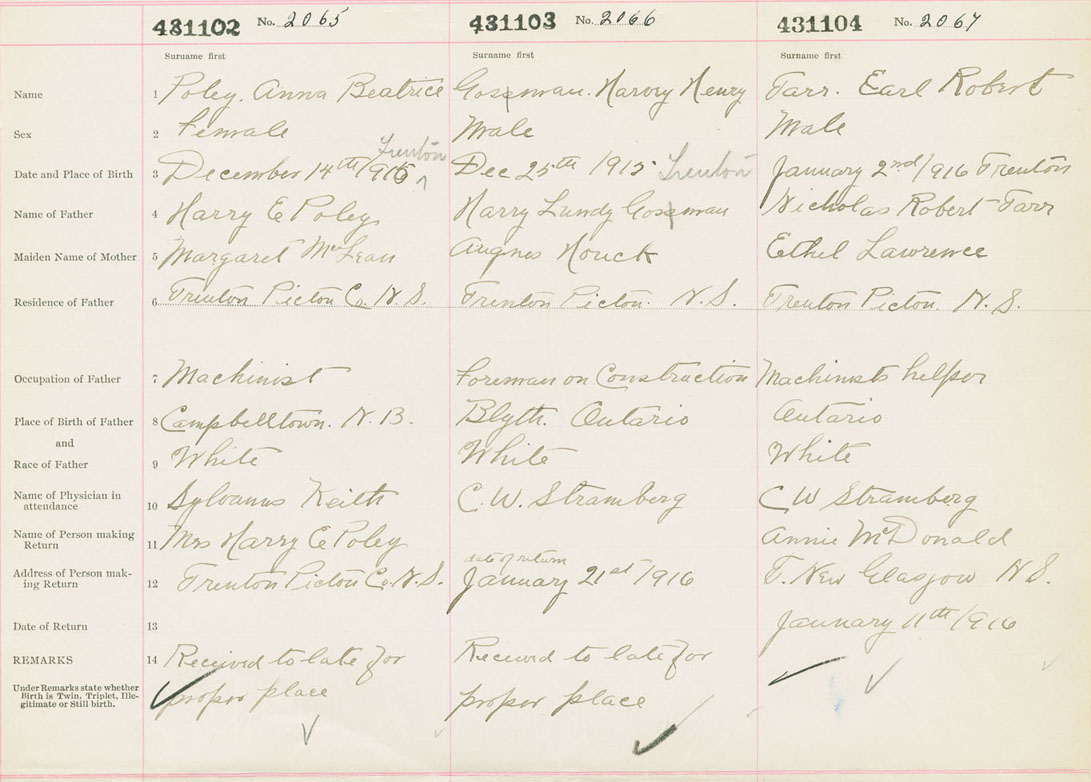 431102 No. 2065 431103 No. 2066 431104 No. 2067
Surname first Surname first Surname first
Name 1 Poley. Anna Beatrice Gossman. Harvey Henry Tarr. Earl Robert
Sex 2 Female Male Male
Trenton
Date and Place of Birth 3 December 14th/1915 ^ Dec 25th /1915 Trenton January 2nd/1916 Trenton
Name of Father 4 Harry E Poley Harry Lundy Gossman Nicholas Robert Tarr
Maiden Name of Mother 5 Margaret McLean Augnes Houck Ethel Lawrence
Residence of Father 6 Trenton Picton Co. N.S. Trenton Picton. N.S. Trenton Picton. N.S.
Occupation of Father 7 Machinist Foreman on Construction Machinists helper
Place of Birth of Father 8 Campbelltown. N.B. Blyth. Ontario Ontario
and
Race of Father 9 White White White
Name of Physician in
attendance 10 Sylvanus Keith C.W. Stramberg C W Stramberg
Name of Person making
Return 11 Mrs Harry E Poley Annie McDonald
date of return
Address of Person mak-
ing Return 12 Trenton Picton Co. N.S. January 21st/1916 T. New Glasgow N S.
Date of Return 13 January 11th/1916
REMARKS 14 Received to late for Received to late for
Under Remarks state whether
Birth is Twin, Triplet, Ille-
gitimate or Still birth.
proper place proper place